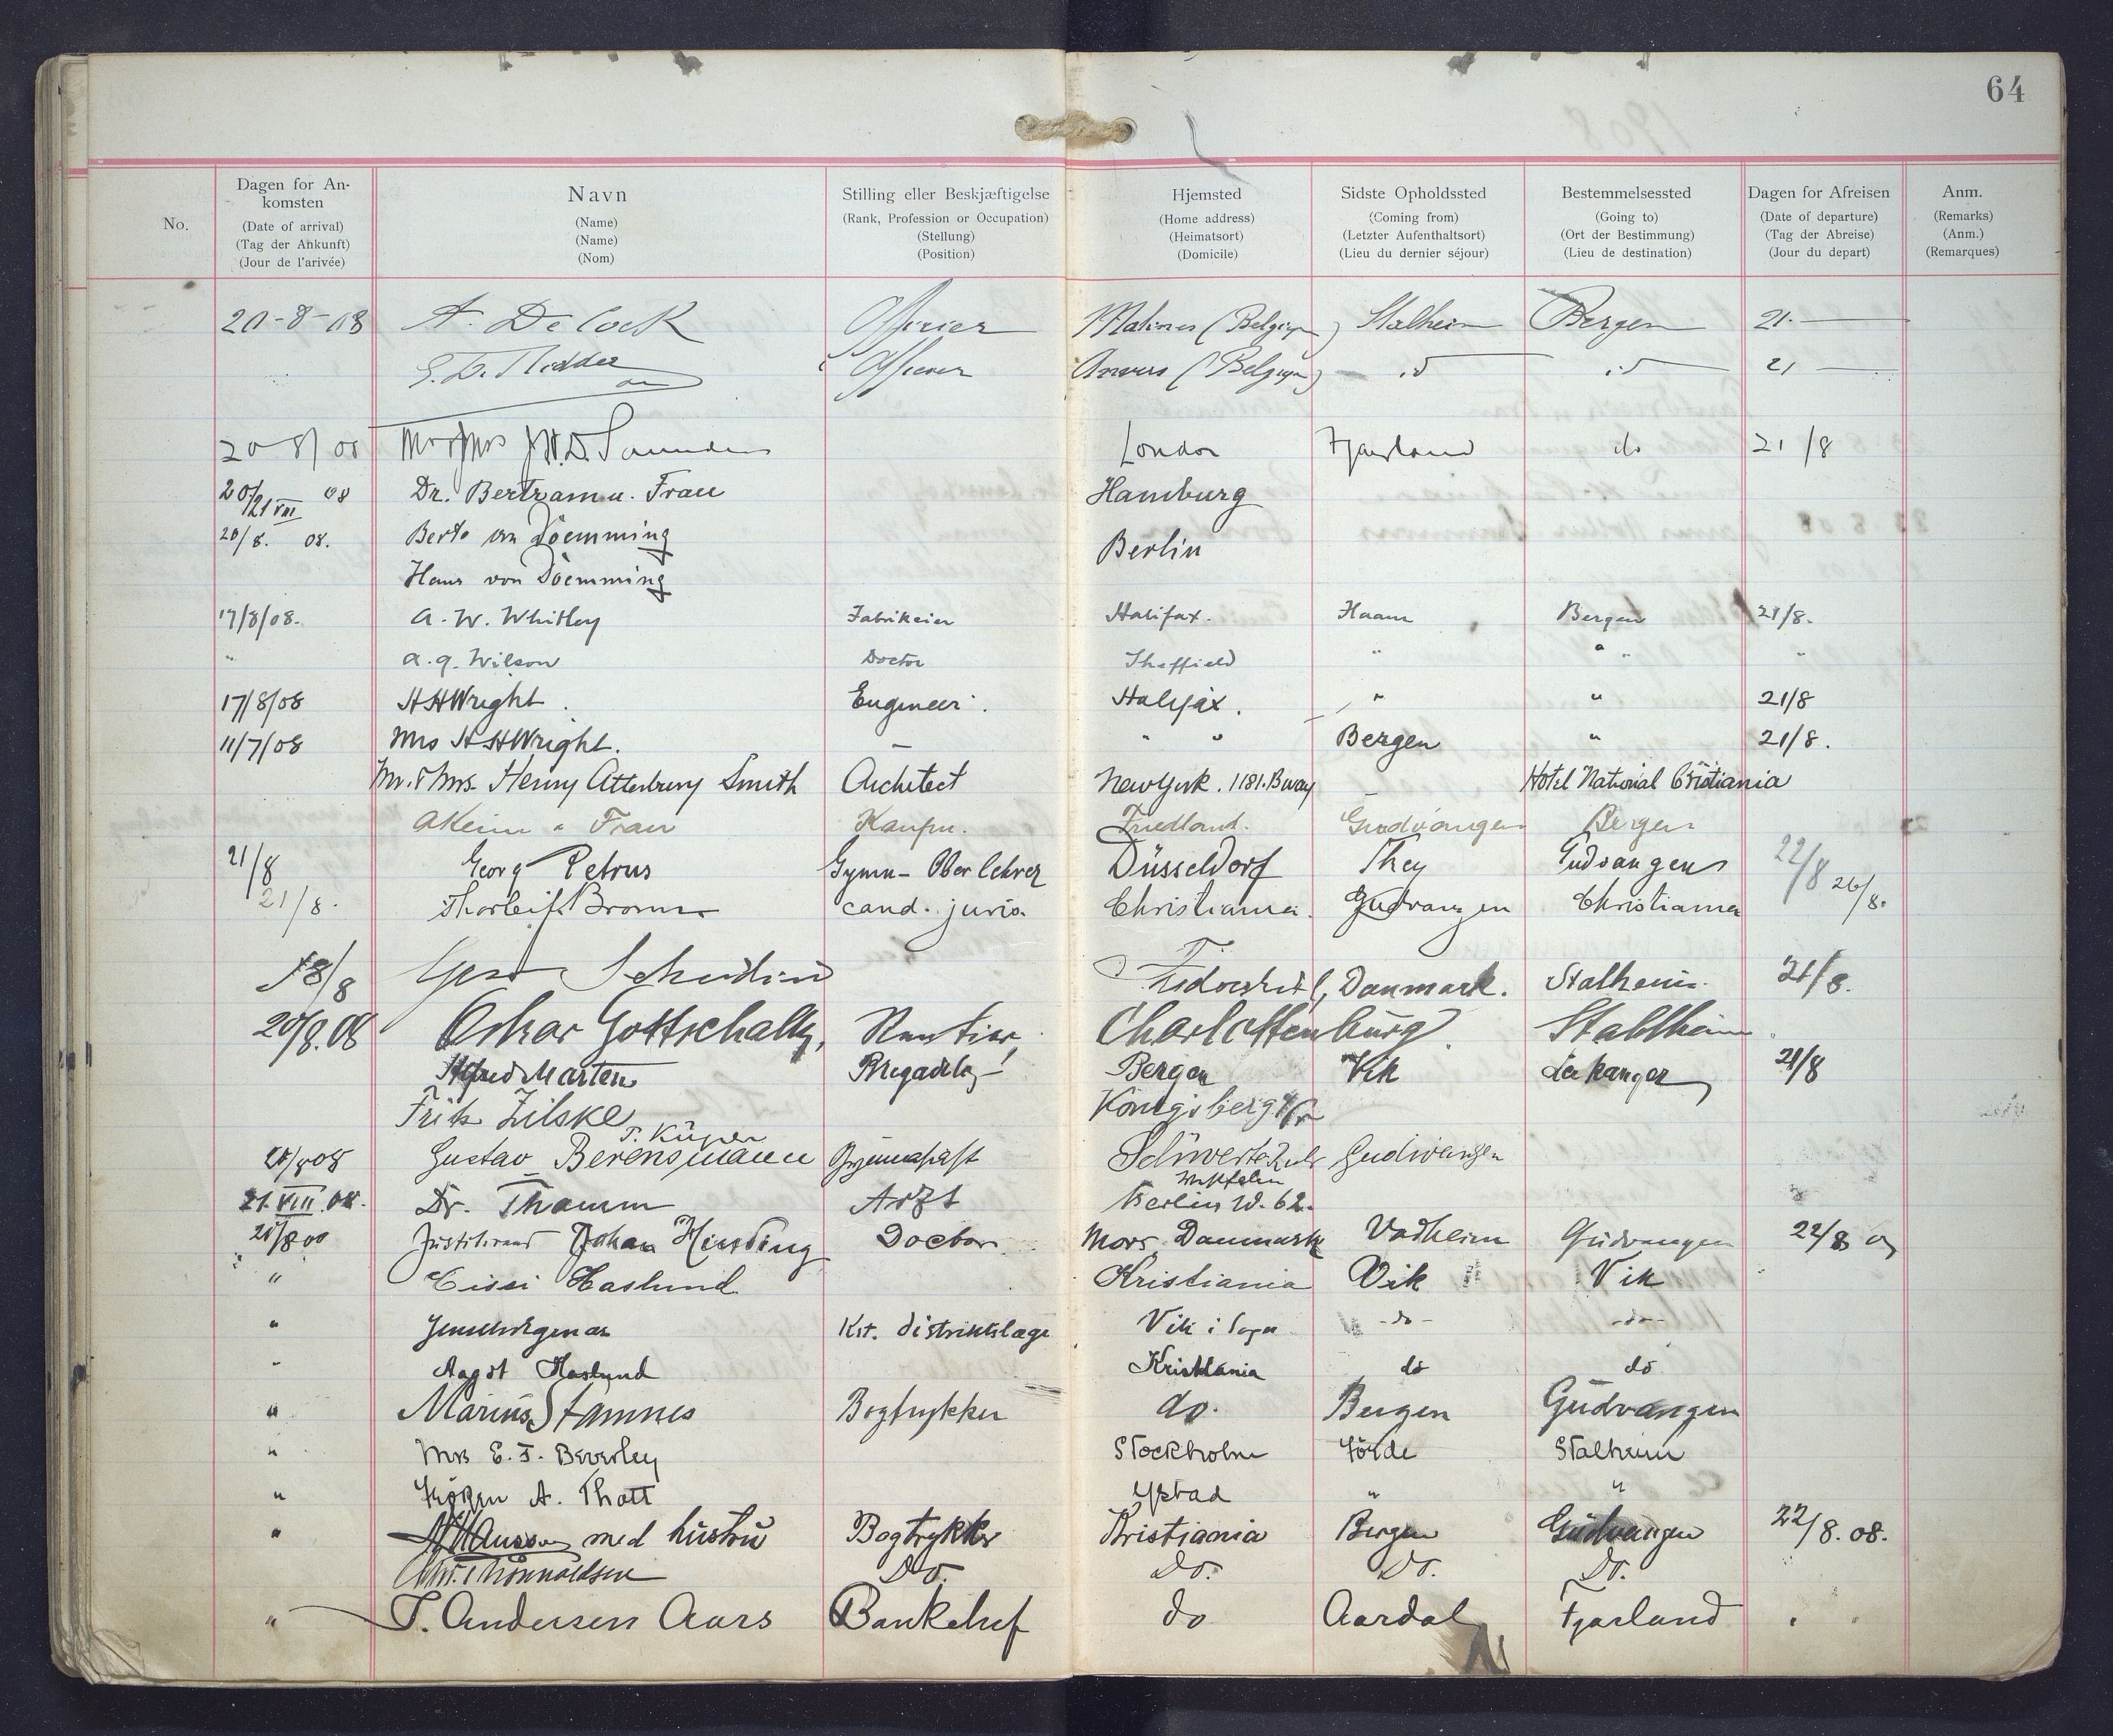 64
No.
Dagen for An-
komsten
(Date of arrival)
(Tag der Ankunft)
(Jour de l'arivée)
Navn
(Name)
(Name)
(Nom)
Stilling eller Beskjæftigelse
(Rank, Profession or Occupation)
(Stellung)
(Position)
Hjemsted
(Home address)
(Heimatsort)
(Domicile)
Sidste Opholdssted
(Coming from)
(Letzter Aufenthaltsort)
(Lieu du dernier séjour)
Bestemmelsessted
(Going to)
(Ort der Bestimmung)
(Lieu de destination)
Dagen for Afreisen
(Date of departure)
(Tag der Abreise)
(Jour du depart)
Anm.
(Remarks)
(Anm.)
(Remarques)
20-8-08 A. De Cock Officier Malines (Belgique) Stalheim Bergen 21.
Officier Anvers (Belgique) id id 21
20 8/08 London Fjærland do 21/8
20/21 VIII 08 Dr. Bertram u. Frau Hamburg
20/8. 08. von Doemming Berlin
Hans von Doemming
17/8/08. A. W. Whitley Halifax. Bergen 21/8.
" A. G. Wilson Doctor Sheffield " " "
17/8/08 H H Wright. Engineer. Halifax. " " 21/8
11/7/08 Mrs H H Wright. — " " Bergen " 21/8.
Mr. & Mrs. Henry Atterbury Smith Architect New York. 1181. Bway Hotel National Cristiania
Frau Kaufm. Friedland. Gudvangen Bergen
21/8 Georg Petrus Gymn- Oberlehrer Düsseldorf Gudvangen 22/8
21/8. Thorleif cand. juris. Christiania. Gudvangen Christiania 26/8.
18/8 Danmark. Stalheim. 21/8.
20/8.08 Oskar Gottschalk, Rentier, Charlottenburg. Stahlheim
Alfred Martens Bergen Vik Leikanger 21/8
Fritz Zilske Königsberg i/Pr
Gustav Berensmann Schwerte Ruhr Gudvangen
Westfalen
21.VIII.08. Dr. Thamm Arzt Berlin W. 62.
Johan Doctor Mors Danmark Vadheim Gudvangen 22/8
" Cissi Haslund Kristiania Vik Vik
" Kst. distriktslæge Vik i Sogn - do - - do -
" Aagot Haslund Kristiania do do
" Marius Stamnes Bogtrykker do. Bergen Gudvangen
" Mrs E. F. Beverley Stockholm Förde Stalheim
" A. Thott Ystad " "
" med hustru Bogtrykker Kristiania Bergen Gudvangen 22/8. 08.
Do. Do. Do. Do.
" J. Andersen Aars Bankchef do Aardal Fjærland